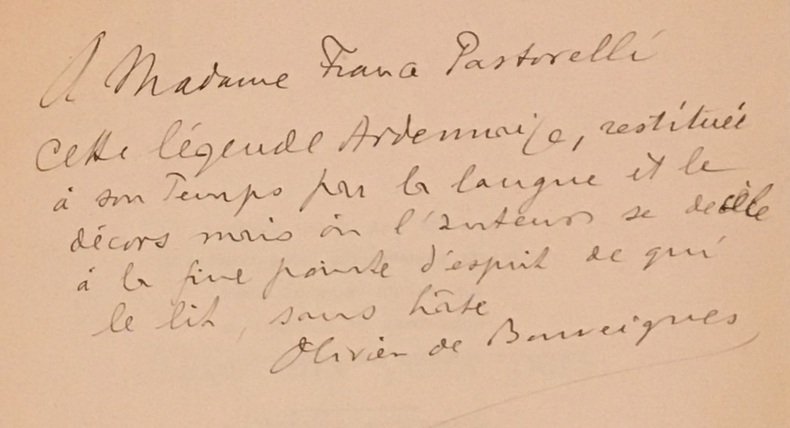 A Madame Franca Pastorelli
cette légende Ardennaise, restituée
à son Temps par la langue et le
décors mais où l'auteur se decèle
à la fine pointe d'esprit de qui
le lit, sans hâte
Olivier de Bouveignes